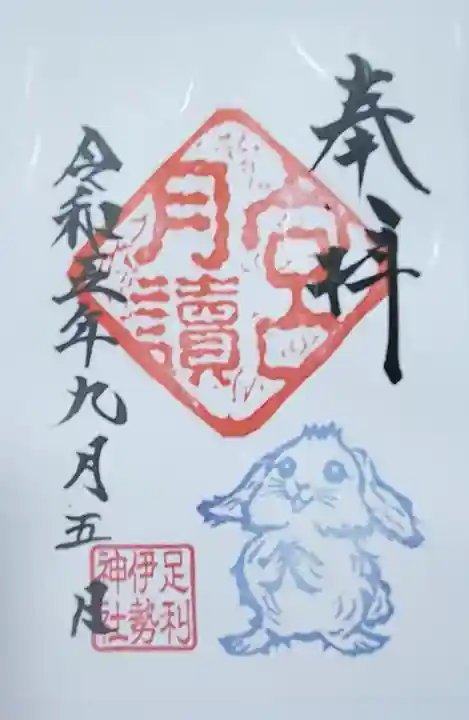 奉拝
宮
月讀
令和五年九月五日
足利
伊勢
神社